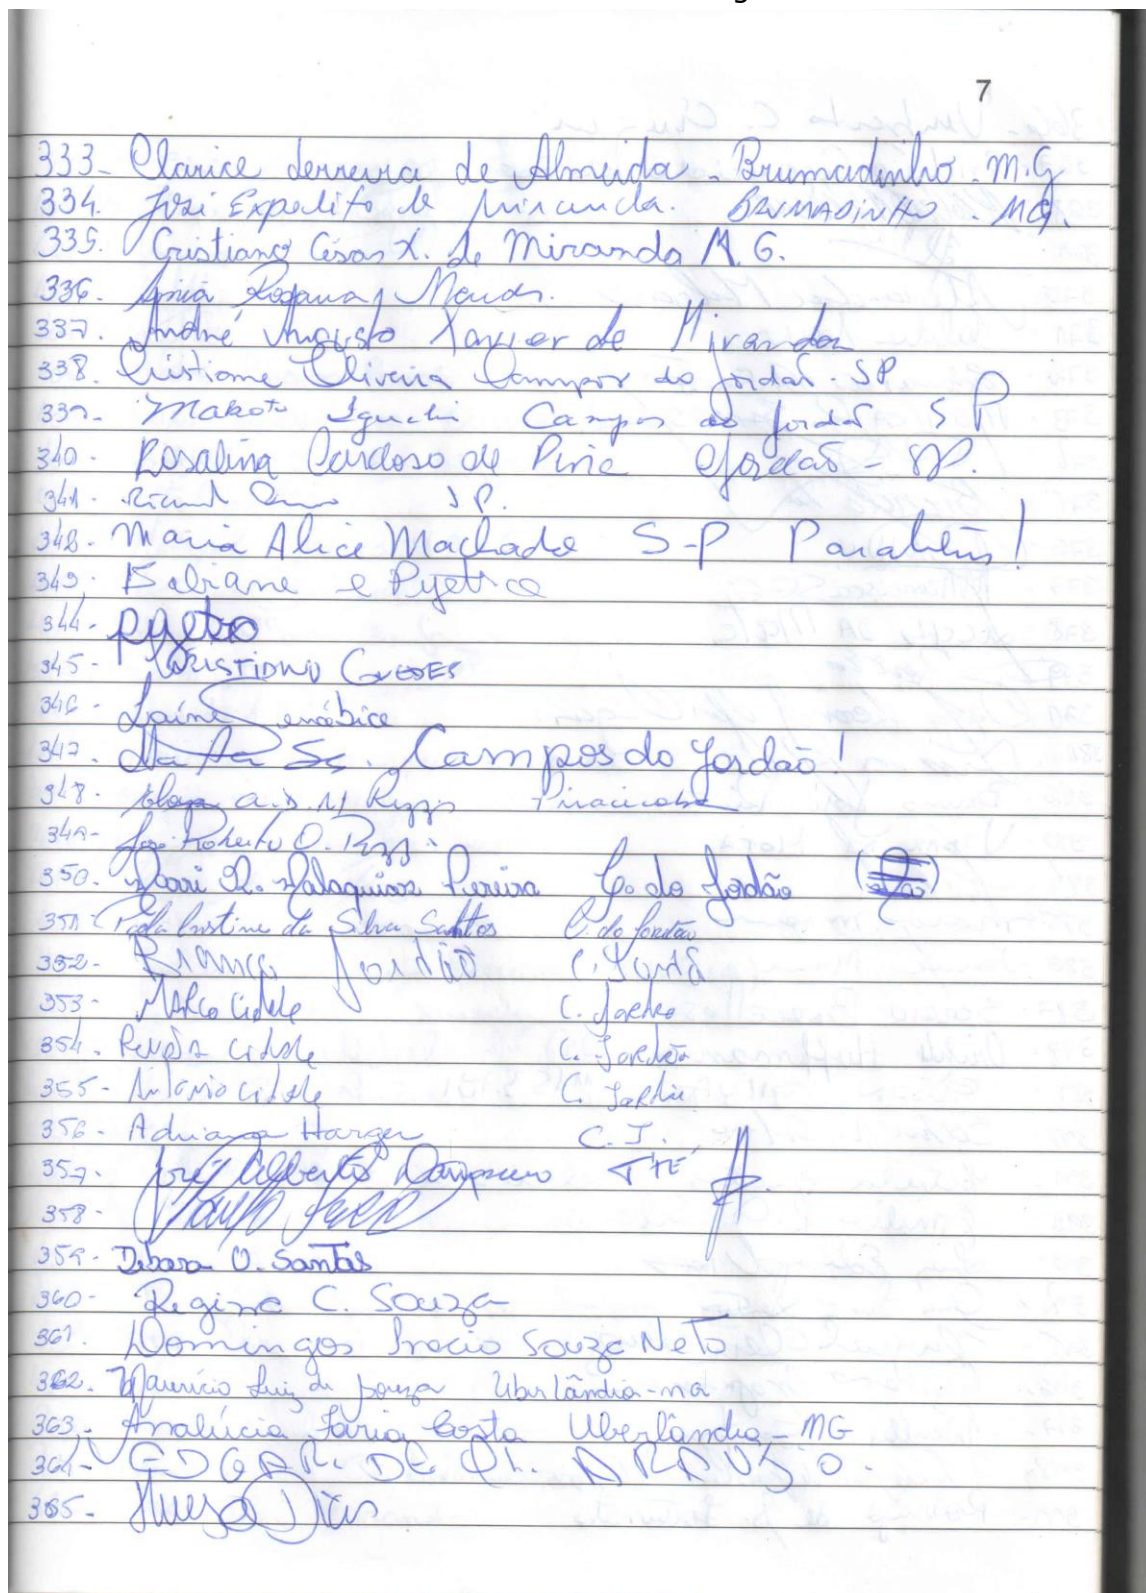 7
333- Clarice Ferreira de Almeida - Brumadinho - M.G
334. José Expedito de Miranda. BRUMADINHO - MG.
335. Cristiano César X. de Miranda M.G.
336.
337. André Augusto Xavier de Miranda
338. Cristiane Oliveira Campos do Jordão - SP
339. Makoto Iguchi Campos do Jordão SP
340. Rosalina Cardoso de Pinie Jordão - SP.
341. SP.
342. Maria Alice Machado S-P Parabéns!
343. Fabiane e Pyetra
344. pyetro
345- CRISTIANO GUEDES
346-
347. Campos do Jordão!
348. Piracicaba
349- José Roberto O. Rizzo
350. Pereira C. do Jordão
351- Paola Cristine da Silva Santos C. do Jordão
352- Bianca Jordão C. Jordã
353- Marco Cidale C. Jordão
354. Renata Cidale C. Jordão
355- Antonio Cidale C. Jordão
356- Adriana Harger C.J.
357- José Alberto
358-
359- Debora O. Santos
360- Regina C. Souza
361. Domingos Inacio Souza Neto
362. Maurício Luiz de Souza Uberlândia-MG
363. Analúcia Faria Costa Uberlândia - MG
364- EDGAR. DE ARAUJO.
365- Dias